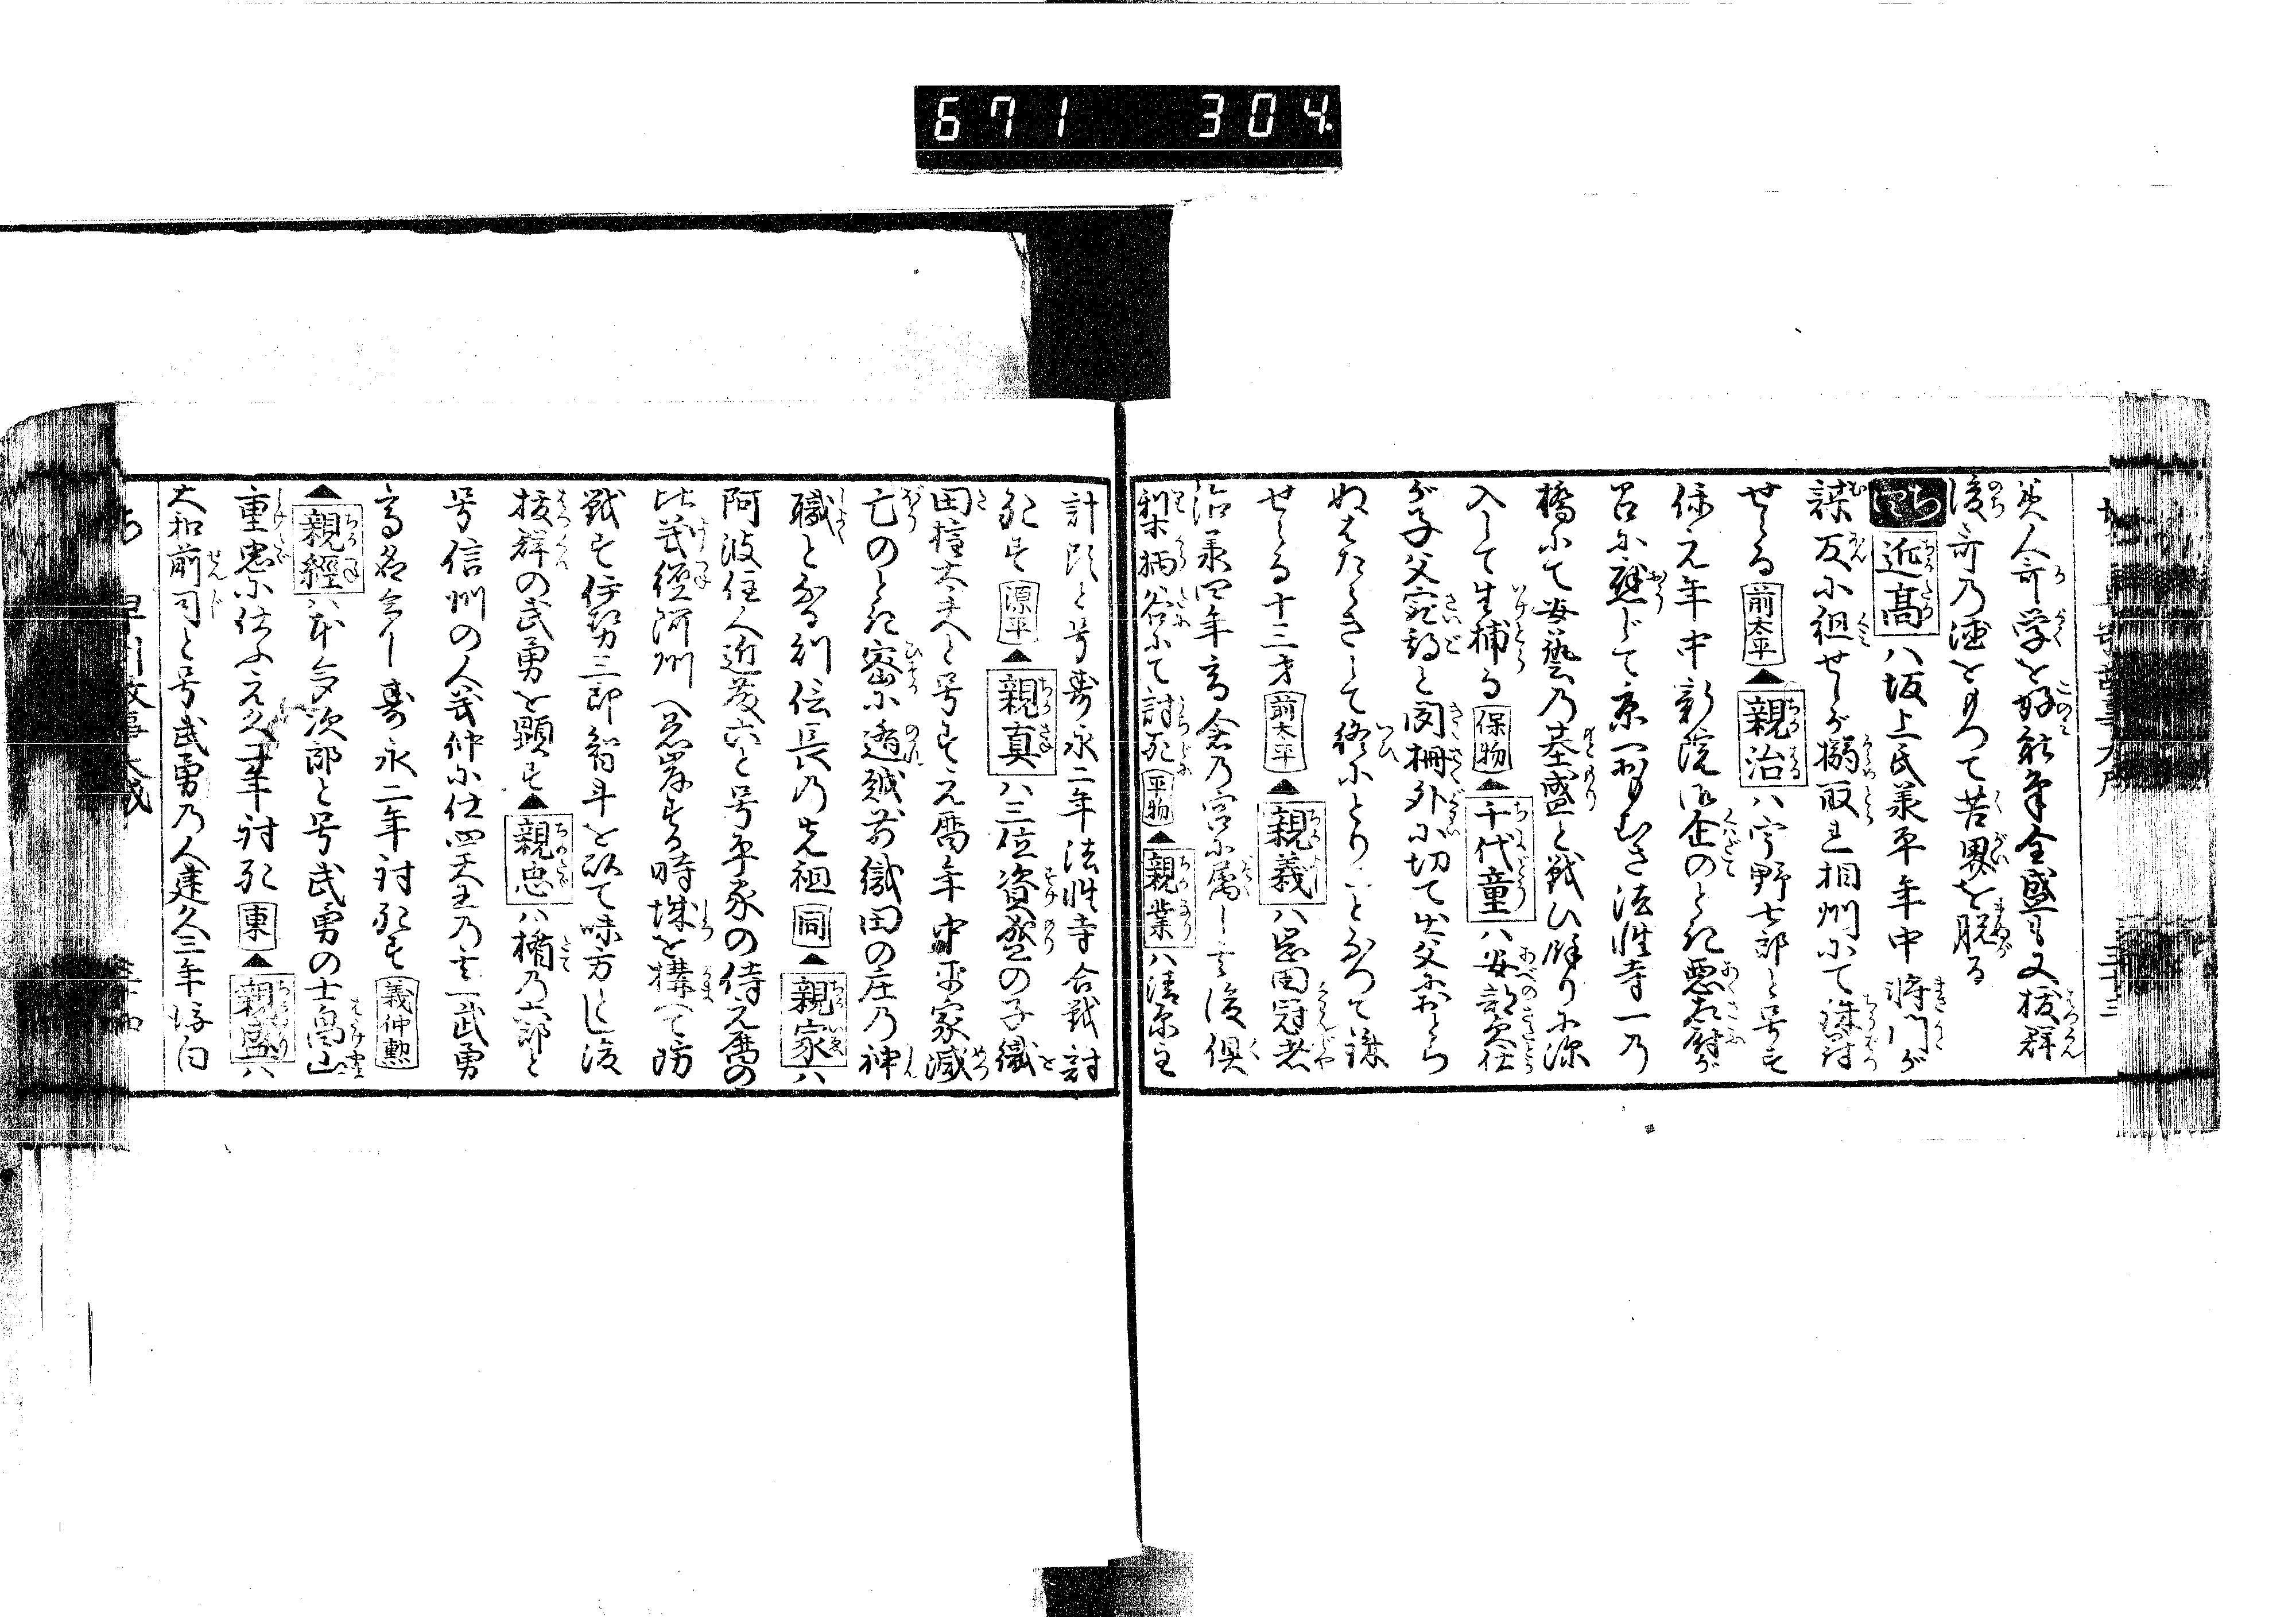 671 304
美人哥学を好能筆全盛も又抜群
後哥の徳をもつて苦界を脱る
ち 近髙 八坂上氏承平年中将門が
謀反に組せしが搦取て相州にて誅討
せらる 前太平 ▲親治 八宇野七郎と号す
保元年中新院御企のとき悪左府が
召に應じて京へおもむき法性寺一の
橋にて安藝の基盛と戦ひ程りに深
入して生捕る 保物 ▲千代童 八安部貞任
が子父宛轉と聞柵外に切て出父におとら
ぬはたらきして終にとりことなつて誅
せらる十三才 前太平 ▲親義 八黒田冠者
治承四年高倉の宮に属し其後倶
梨柄谷にて討死 平物 ▲親業 八清原主
計頭と号寿永二年法性寺合戦討
死す 源平 ▲親真 八三位資盛の子織
田権太夫と号す元暦年中平家滅
亡のとき密に遁越前織田の庄の神
職となる則信長の先祖 同 ▲親家 八
阿波住人近藤六と号平家の侍元暦の
比義経阿州へ着岸する時城を構へて防
戦す伊勢三郎智斗を以て味方とし後
抜群の武勇を顕す ▲親忠 八楯の六郎と
号信州の人義仲に仕四天王の其一武勇
高名多し寿永二年討死す 義仲勲
▲親經 八本多次郎と号武勇の士畠山
重忠に仕ふ元久二年討死 東 ▲親盛 八
大和前司と号武勇の人建久三年後白